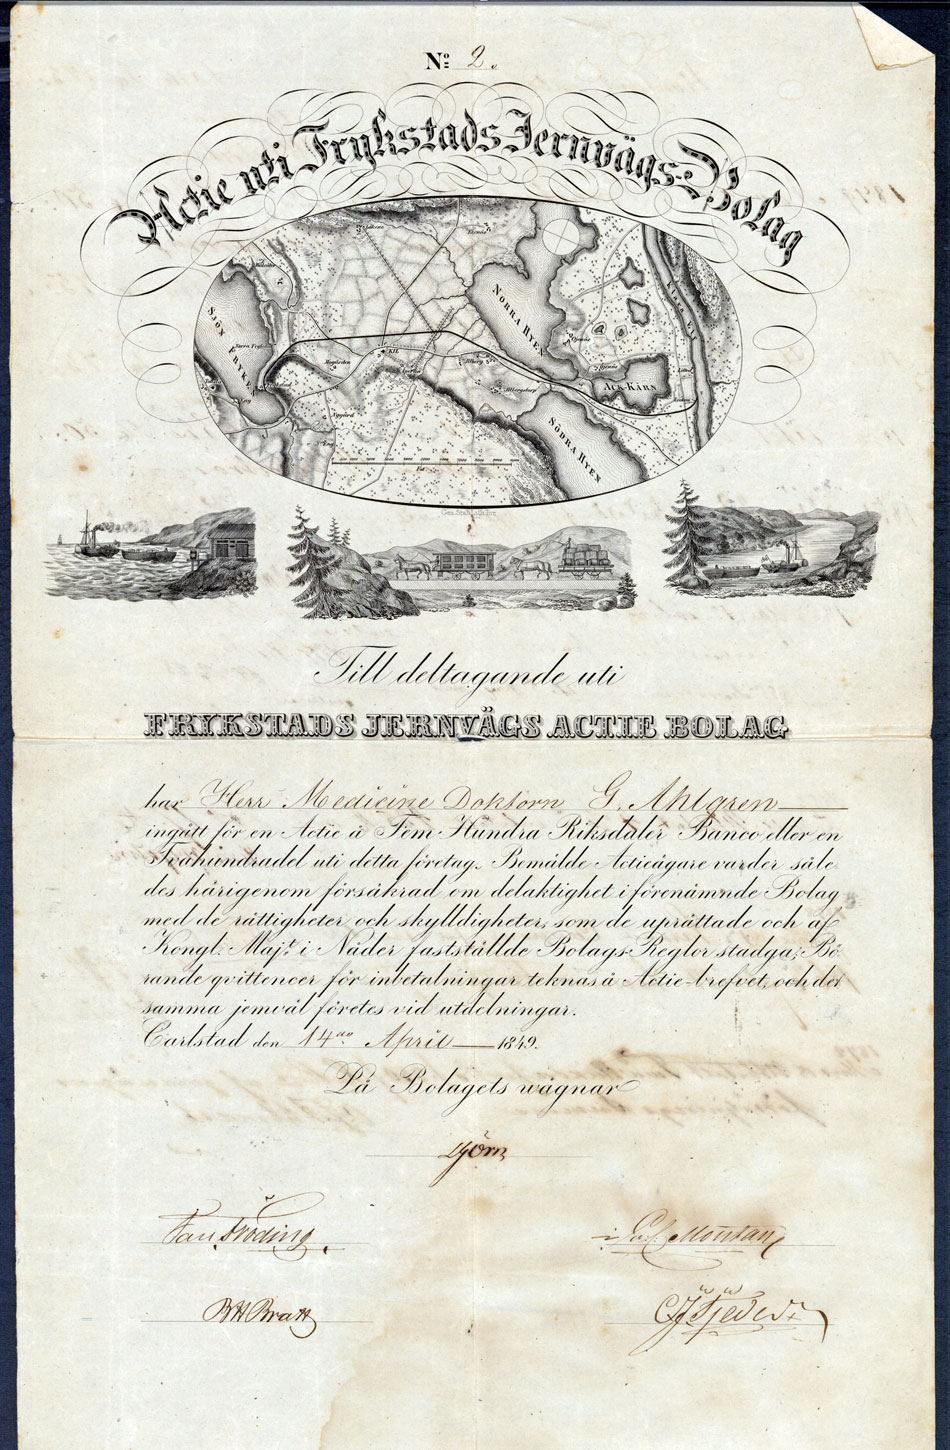 No 2.
Actie uti Frykstads Jernvägs-Bolag
SJÖN FRYKEN
KIL
NORRA HYEN
SÖDRA HYEN
ACK-KÄRN
KLARA ELF
Till deltagande uti
FRYKSTADS JERNVÄGS ACTIE BOLAG
har Herr Medicine Doktorn G. Ahlgren
ingått för en Actie à Fem Hundra Riksdaler Banco eller en
Tvåhundradel uti detta företag. Bemälde Actieägare varder såle
des härigenom försäkrad om delaktighet i förenämnde Bolag
med de rättigheter och skylldigheter, som de uprättade och af
Kongl. Maj:t i Nåder fastställde Bolags-Reglor stadga; Bö
rande qvittencer för inbetalningar teknas å Actie-brefvet, och det
samma jemväl företes vid utdelningar.
Carlstad den 14de April 1849.
På Bolagets wägnar
Fröding
Montan
Bratt